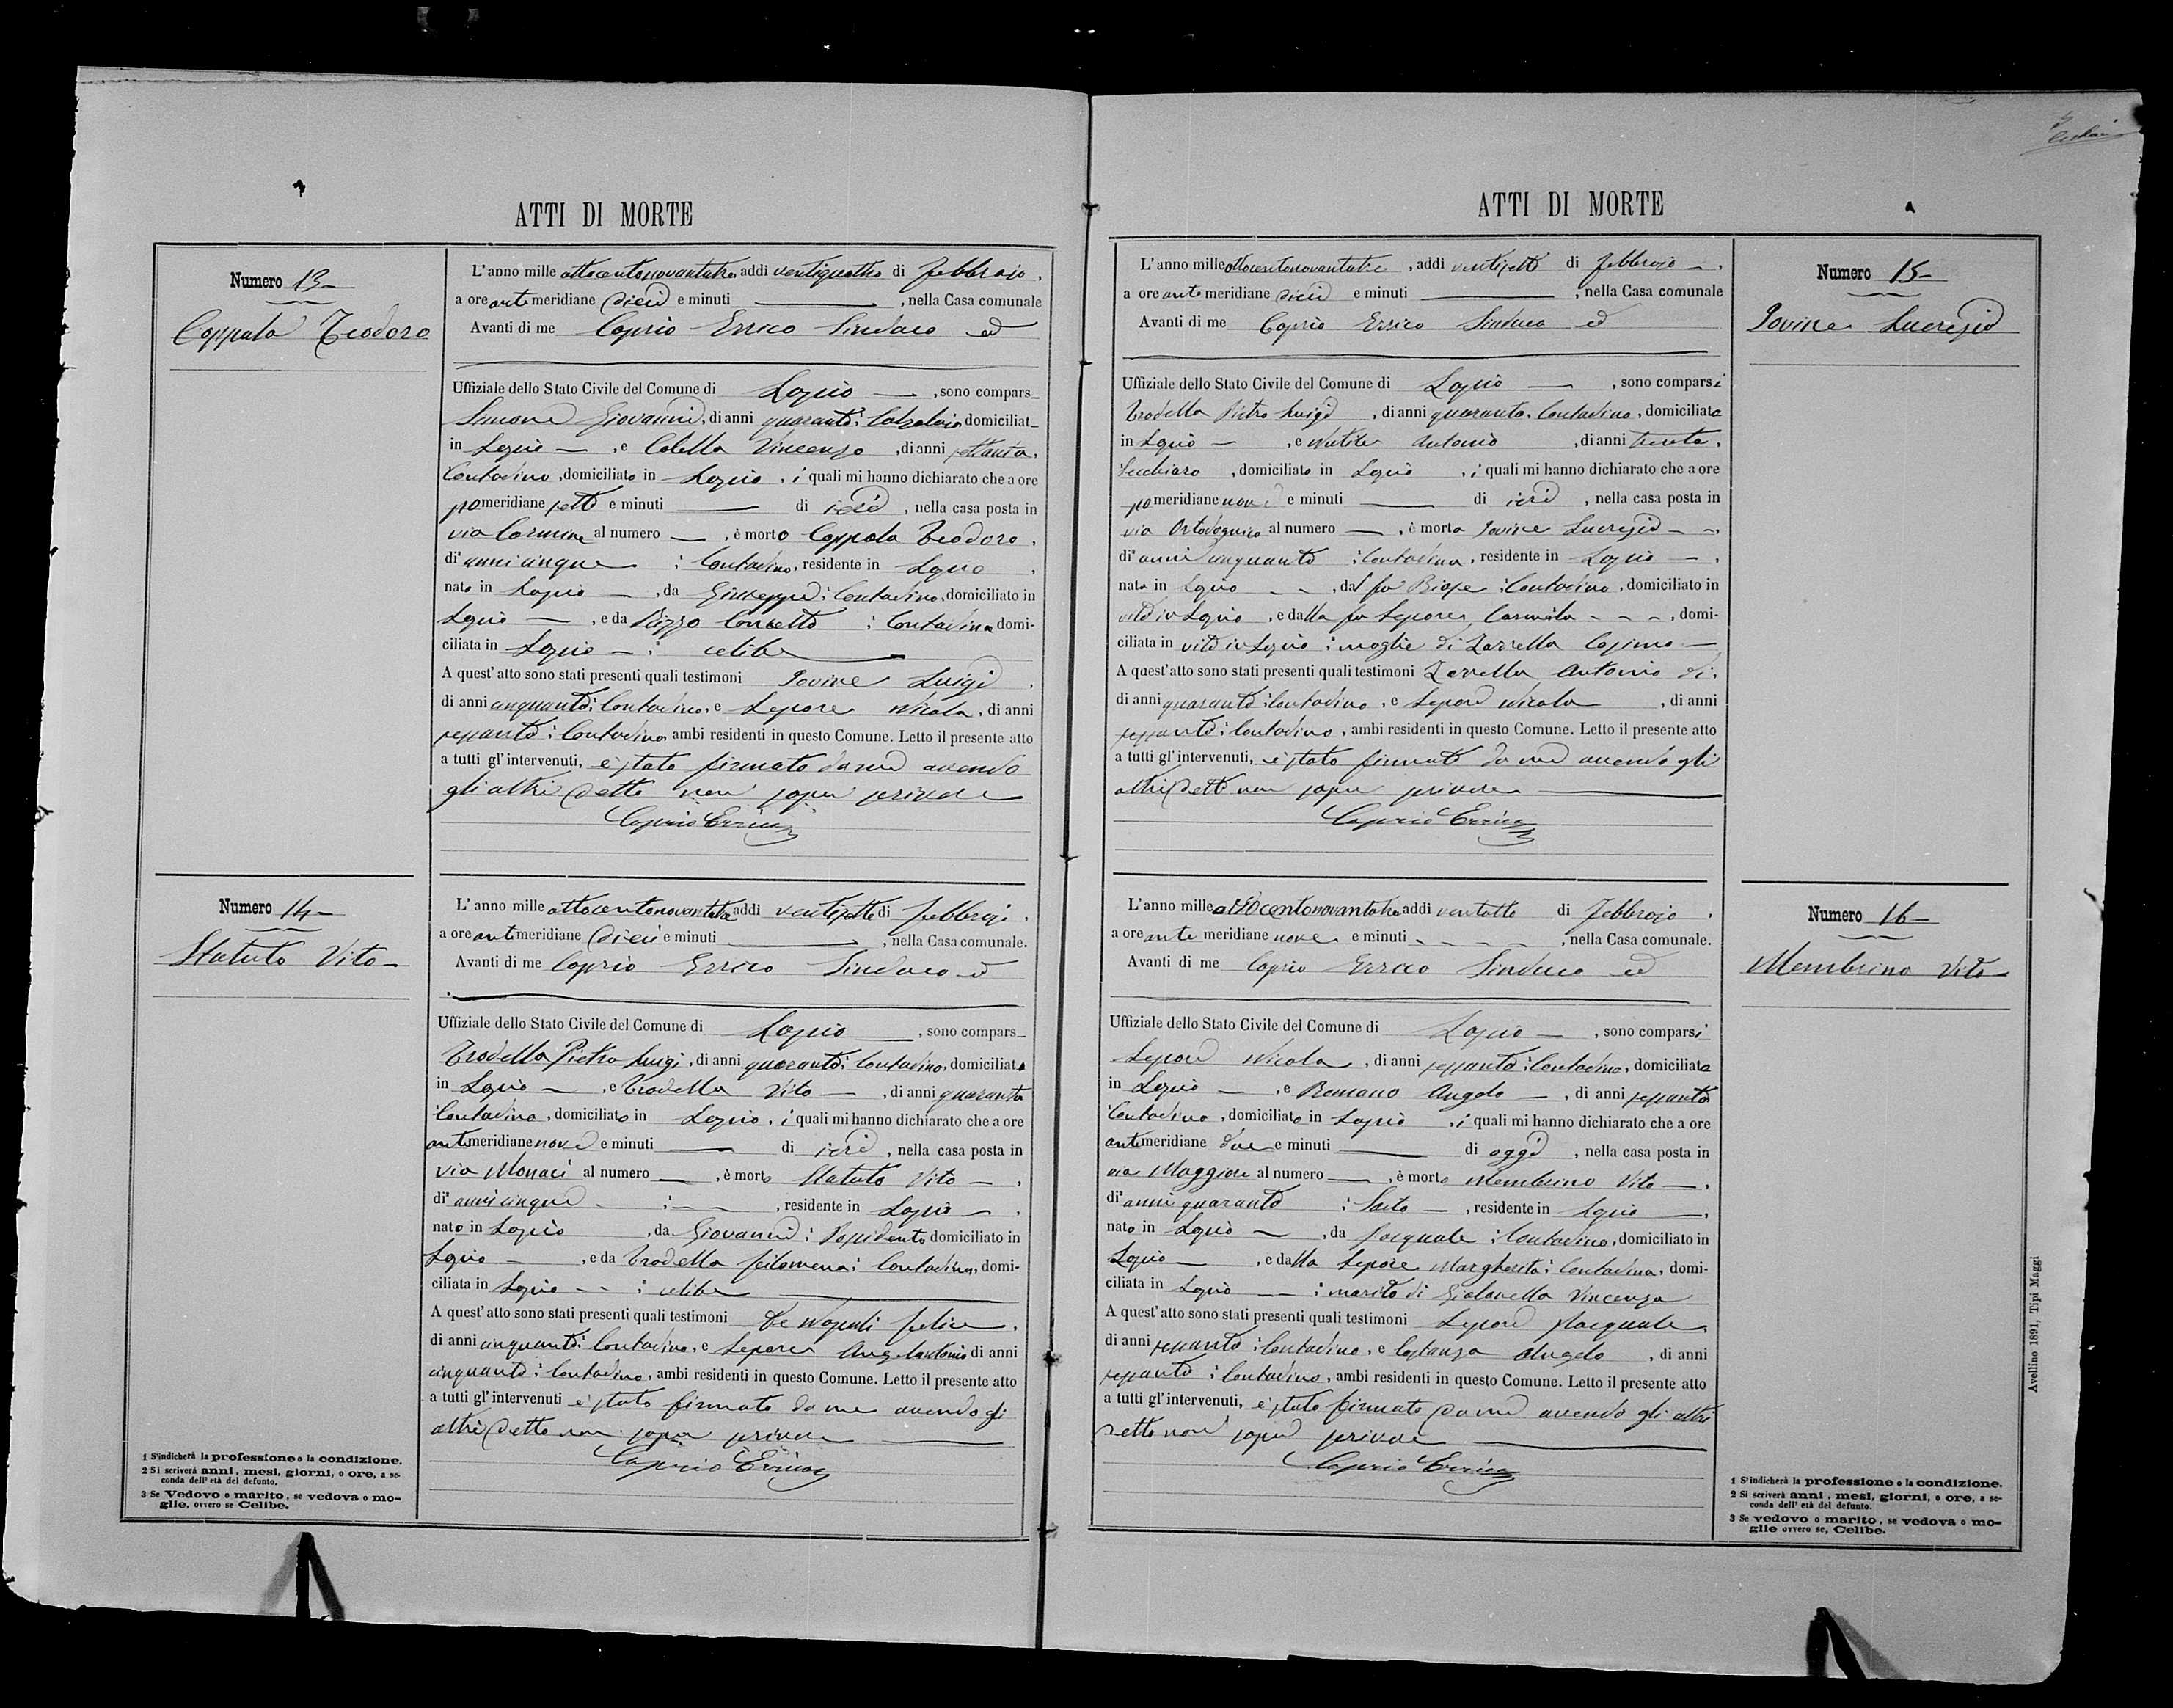 ATTI DI MORTE
Numero 13
Coppola Teodoro
L'anno mille ottocentonovantatre, addì ventiquattro di febbraio,
a ore antimeridiane dieci e minuti , nella Casa comunale
Avanti di me Caprio Errico Sindaco ed
Uffiziale dello Stato Civile del Comune di Lapio , sono compars
Simone Giovanni, di anni quaranta, Calzolaio domiciliat
in Lapio , e Colella Vincenzo , di anni settanta,
Contadino, domiciliato in Lapio, i quali mi hanno dichiarato che a ore
pomeridiane sette e minuti di ieri , nella casa posta in
via Carmine al numero , è morto Coppola Teodoro,
di anni cinque ; Contadino, residente in Lapio ,
nato in Lapio , da Giuseppe ; Contadino, domiciliato in
Lapio , e da Rizzo Concetta ; Contadina domi-
ciliata in Lapio ; celibe
A quest'atto sono stati presenti quali testimoni Iovine Luigi ,
di anni cinquanta ; Contadino, e Lepore Nicola, di anni
sessanta ; Contadino, ambi residenti in questo Comune. Letto il presente atto
a tutti gl'intervenuti, è stato firmato da me avendo
gli altri detto non saper scrivere
Caprio Errico
Numero 14
Statuto Vito
L'anno mille ottocentonovantatre addì ventisette di febbraio.
a ore antimeridiane dieci e minuti , nella Casa comunale.
Avanti di me Caprio Errico Sindaco ed
Uffiziale dello Stato Civile del Comune di Lapio , sono compars
Trodella Pietro Luigi, di anni quaranta ; Contadino, domiciliato
in Lapio , e Trodella Vito , di anni quaranta
Contadino, domiciliato in Lapio, i quali mi hanno dichiarato che a ore
antimeridiane nove e minuti di ieri , nella casa posta in
via Monaci al numero , è morto Statuto Vito ,
di anni cinque ; , residente in Lapio ,
nato in Lapio , da Giovanni ; Possidente domiciliato in
Lapio , e da Trodella filomena ; Contadina, domi-
ciliata in Lapio ; celibe
A quest'atto sono stati presenti quali testimoni De Napoli felice,
di anni cinquanta ; Contadino, e Lepore Angelantonio di anni
cinquanta ; Contadino, ambi residenti in questo Comune. Letto il presente atto
a tutti gl'intervenuti è stato firmato da me avendo gli
altri detto non saper scrivere
Caprio Errico
1 S'indicherà la professione o la condizione.
2 Si scriverà anni, mesi, giorni, o ore, a se-
conda dell'età del defunto.
3 Se Vedovo o marito, se vedova o mo-
glie, ovvero se Celibe.
ATTI DI MORTE
Numero 15
Iovine Lucrezia
L'anno mille ottocentonovantatre , addì ventisette di febbraio ,
a ore antimeridiane dieci e minuti , nella Casa comunale
Avanti di me Caprio Errico Sindaco ed
Uffiziale dello Stato Civile del Comune di Lapio , sono comparsi
Trodella Pietro Luigi , di anni quaranta, Contadino, domiciliato
in Lapio , e Antonio , di anni trenta,
, domiciliato in Lapio , i quali mi hanno dichiarato che a ore
pomeridiane nove e minuti di ieri , nella casa posta in
via al numero , è morta Iovine Lucrezia ,
di anni cinquanta ; Contadina, residente in Lapio ,
nata in Lapio , dal fu Biase ; Contadino, domiciliato in
vita in Lapio , e dalla fu Lepore Carmela , domi-
ciliata in vita in Lapio ; moglie di Zarrella Cosimo
A quest'atto sono stati presenti quali testimoni Zarrella Antonio di,
di anni quaranta ; Contadino, e Lepore Nicola , di anni
sessanta ; Contadino, ambi residenti in questo Comune. Letto il presente atto
a tutti gl'intervenuti, è stato firmato da me avendo gli
altri detto non saper scrivere
Caprio Errico
Numero 16
Membrino Vito
L'anno mille ottocentonovantatre addì ventotto di febbraio ,
a ore antimeridiane nove e minuti , nella Casa comunale.
Avanti di me Caprio Errico Sindaco ed
Uffiziale dello Stato Civile del Comune di Lapio , sono comparsi
Lepore Nicola , di anni sessanta ; Contadino, domiciliato
in Lapio , e Romano Angelo , di anni sessanta
Contadino, domiciliato in Lapio , i quali mi hanno dichiarato che a ore
antimeridiane due e minuti di oggi , nella casa posta in
via Maggiore al numero , è morto Membrino Vito ,
di anni quaranta ; Sarto , residente in Lapio ,
nato in Lapio , da Pasquale ; Contadino, domiciliato in
Lapio , e dalla Lepore Margherita ; Contadina, domi-
ciliata in Lapio ; marito di Vincenza
A quest'atto sono stati presenti quali testimoni Lepore Pasquale,
di anni sessanta ; Contadino, e Costanza Angelo , di anni
sessanta ; Contadino, ambi residenti in questo Comune. Letto il presente atto
a tutti gl'intervenuti, è stato firmato da me avendo gli altri
detto non saper scrivere
Caprio Errico
1 S'indicherà la professione o la condizione.
2 Si scriverà anni, mesi, giorni, o ore, a se-
conda dell'età del defunto.
3 Se vedovo o marito, se vedova o mo-
glie ovvero se, Celibe.
Avellino 1891, Tipi Maggi